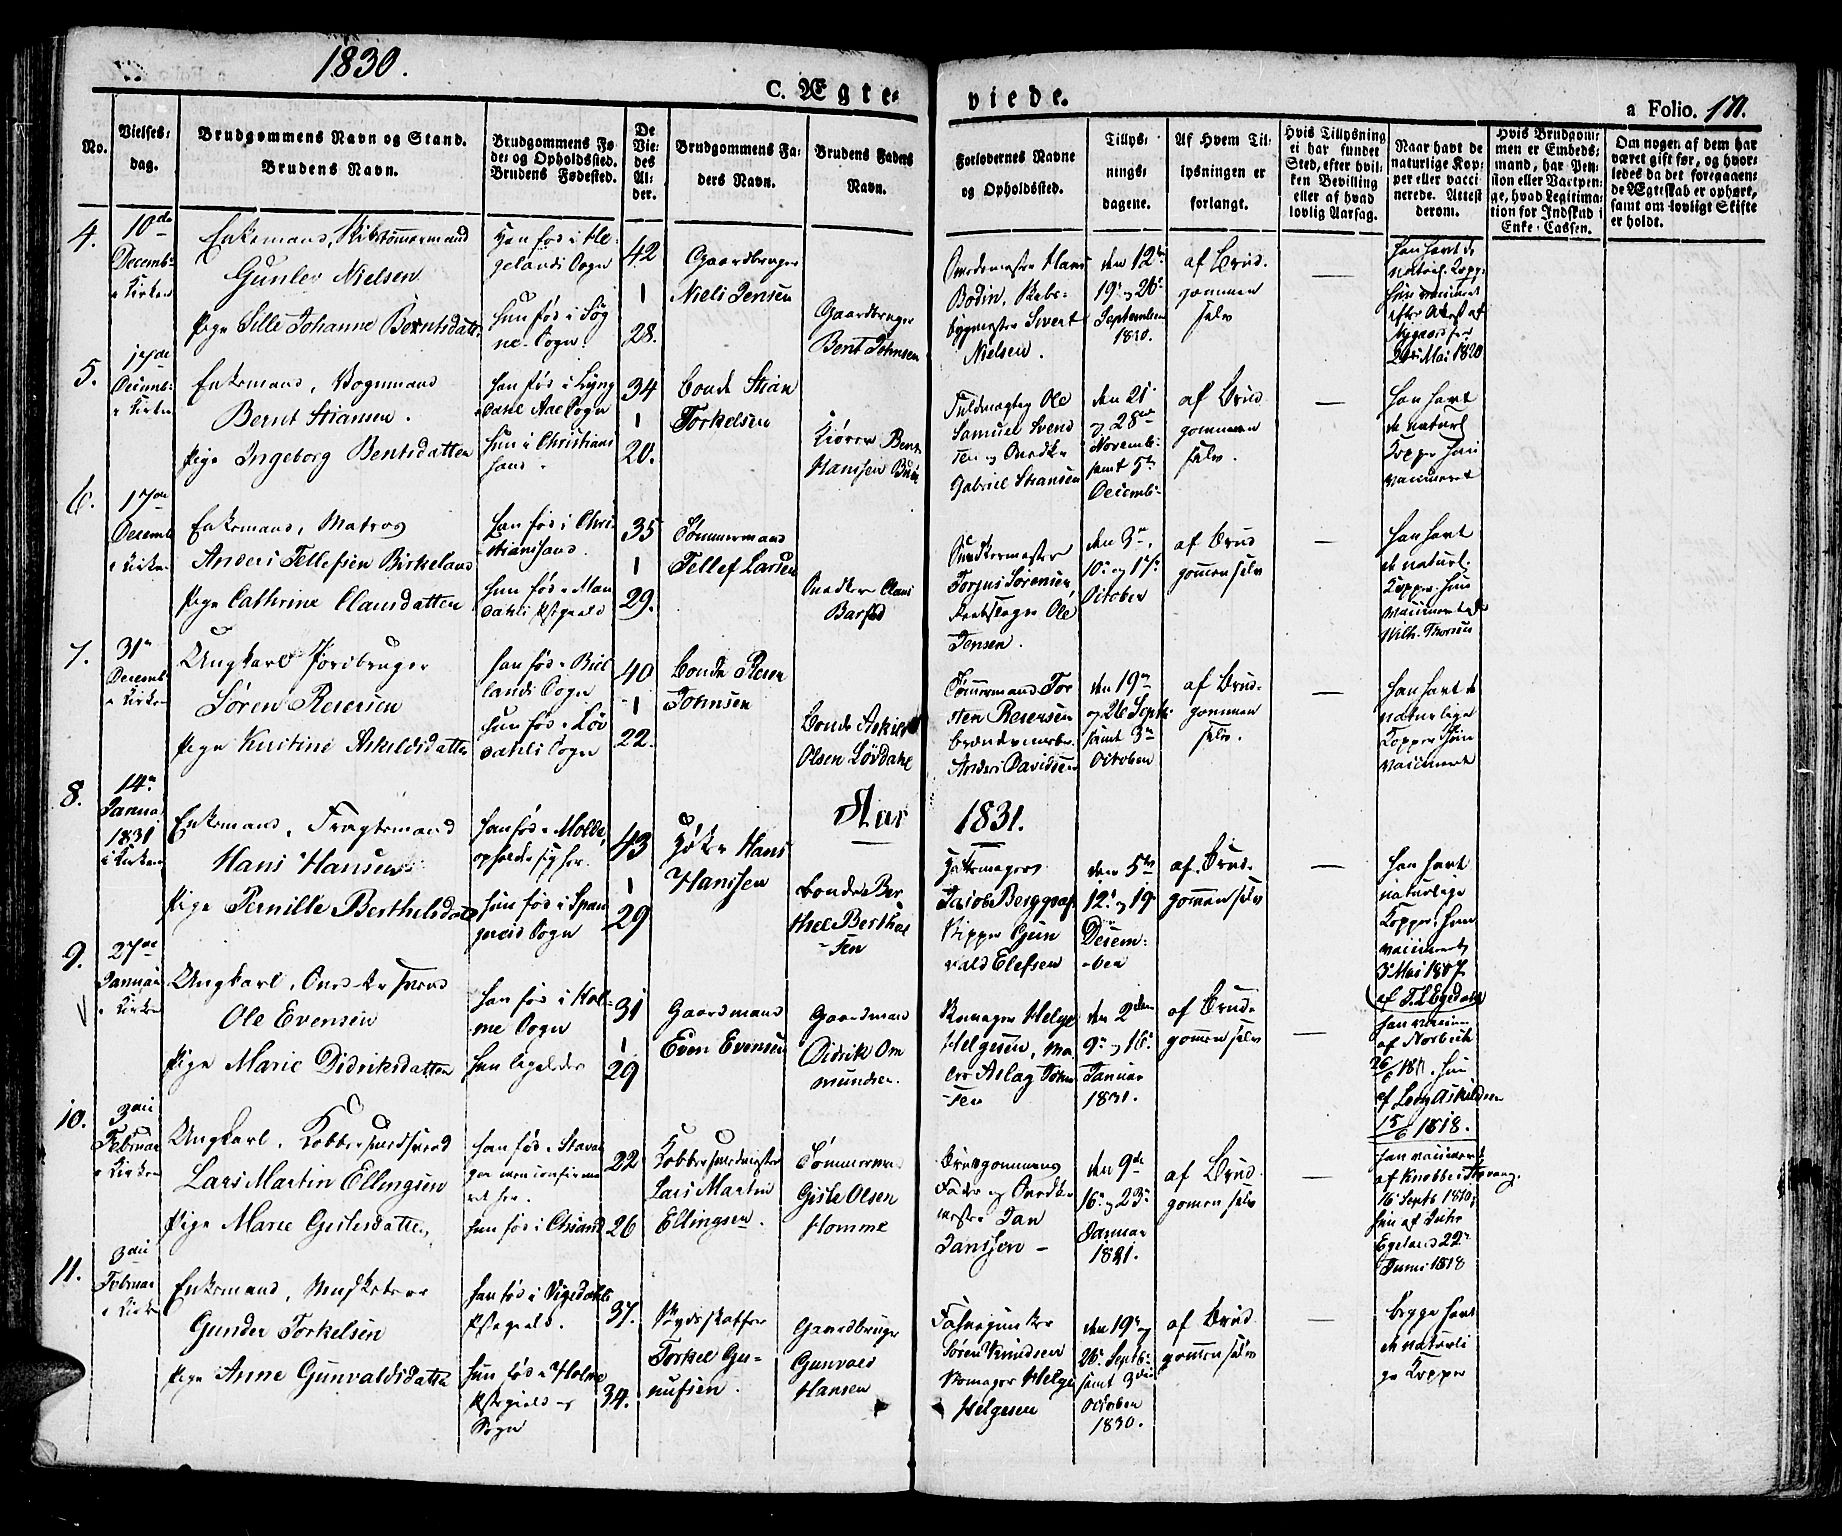 1830.
C. Ægte-
viede.
a Folio. 171.
No.
Vielses-
dag.
Brudgommens Navn og Stand.
Brudens Navn.
Brudgommens Fø-
de- og Opholdssted.
Brudens Fødested.
De
Vie-
des
Al-
der.
Brudgommens Fa-
ders Navn.
Brudens Faders
Navn.
Forlovernes Navne
og Opholdssted.
Tillys-
nings-
dagene.
Af Hvem Til-
lysningen er
forlangt.
Hvis Tillysning
ei har fundet
Sted, efter hvil-
ken Bevilling
eller af hvad
lovlig Aarsag.
Naar havt de
naturlige Kop-
per eller vacci-
nerede. Attest
derom.
Hvis Brudgom-
men er Embeds-
mand, har Pen-
sion eller Vartpen-
ge, hvad Legitima-
tion for Indskud i
Enke-Cassen.
Om nogen af dem har
været gift før, og hvor-
ledes da det foregaaen-
de Ægteskab er ophørt,
samt om lovligt Skifte
er holdt.
4.
10de
Decemb:
i Kirken
Enkemand, Skibstømmermand
Gunler Nielsen
Pige Sille Johanne Berntsdatter
Han fød i He-
gelands Sogn
hun fød i Søg-
ne Sogn
42
28.
Gaardbruger
Niels Jensen
Gaardbruger
Bent Johnsen
Hans
Bodin,
Sivert
Nielsen.
den 12te
19de og 26de
Septembr
1830.
af Brud-
gommen
selv
—
han havt de
naturl. Kopp.
hun vaccineret
efter Attest af
Nygaard fra
Mai 1820
5.
17de
Decemb:
i Kirken
Enkemand, Vognmand
Bernt Stiansen.
Pige Ingeborg Bentsdatter
han fød i Lyng-
dahl Aae Sogn
hun i Christian-
sand.
34
20.
Bonde Stian
Torkelsen
Bent
Hanssen
Fuldmægtig Ole
Samuel Svend-
sen og Snedker
Gabriel Stiansen
den 21de
og 28de
Novemb:
samt 5te
Decemb:
af Brud-
gommen
selv.
—
han havt
de naturl.
Kopper hun
vaccineret
6.
17de
Decemb:
i Kirken
Enkemand, Matros
Anders Tellefsen Birkeland
Pige Cathrine Clausdatter
han fød i Chri-
stiansand.
hun fød i Man-
dahls Præstegield
35
29.
Tømmermand
Tellef Larsen
Snedker Claus
Barsted
Torgus Sørensen
Ole
Jensen.
den 3die,
10de og 17de
October
af Brud-
gommen selv
—
han havt
de naturl.
Kopper. hun
vaccineret af
Vilh. Thorsen
7.
31te
Decemb:
i Kirken
Ungkarl Jordbruger
Søren Reiersen
Pige Kristine Askeldsdatter
han fød i Biel-
lands Sogn
hun fød i Løv-
dahls Sogn
40
22.
Bonde Reier
Johnsen
Bonde Askield
Olsen Løvdahl
Tømmermand Tor-
sten Reiersen
Anders Davidsen
den 19de
og 26 Septb:
samt 3die
October
af Brud-
gommen
selv.
—
han havt de
naturlige
Kopper. hun
vaccineret
Aar 1831.
8.
14de
Januar
1831
i Kirken
Enkemand, Fragtemand
Hans Hansen
Pige Pernille Berthelsdatter
han fød i Molde,
opholder sig her.
hun fød i Span-
gereid Sogn
43
29
Høker Hans
Hanssen
Bonde Ber-
thel Berthel-
sen
Hattemager
Jacob Berggraf
Skipper Gun-
vald Elefsen
den 5te
12te og 19de
Decem-
ber
af Brud-
gommen selv
—
han havt
naturlige
Kopper. hun
vaccineret
3 Mai 1807
af T. L. Egedahl
9.
27de
Januar
i Kirken
Ungkarl, Snedkersvend
Ole Evensen
Pige Marie Didriksdatter
han fød i Hol-
me Sogn
hun ligeledes
31
29
Gaardmand
Even Evensen
Gaardmand
Didrik Om-
mundsen.
Skomager Helge
Helgesen, Ma-
ler Aslag John-
sen
den 2den
9de og 16de
Januar
1831.
af Brud-
gommen selv
—
han vaccin.
af Norbeck
26/6 181. hun
af Long Askildsen
15/6 1818.
10.
3die
Februar
i Kirken
Ungkarl, Kobbersmedsvend
Lars Martin Ellingsen
Pige Maree Gislesdatter
han fød i Stavan-
ger men confirme-
ret her.
hun fød i Chsand
22
26
Kobbersmedmester
Lars Martin
Ellingsen.
Tømmermand
Gisle Olsen
Homme
Brudgommens
Fader og Snedker-
mester Jan
Janssen -
den 9de
16de og 23de
Januar
1831.
af Brud-
gommen selv
—
han vaccineret
af Knobbe i Stavang.
16 Septb 1810,
hun af Juhr
Egeland 22de
Juni 1818
11.
3die
Februar
i Kirken
Enkemand, Musketeer
Gunder Torkelsen
Pige Anne Gunvaldsdatter
han fød i Vigedahls
Præstegield.
hun fød i Holme
Præstegield og
Sogn
37.
34.
Torkel Gu-
Gaardbruger
Gunvald
Hansen
Søren Knudsen
Skomager Helge
Helgesen
den 19de og
26de Septb:
samt 3die
October
1830.
af Brud-
gommen selv
—
begge havt
de naturli-
ge Kopper